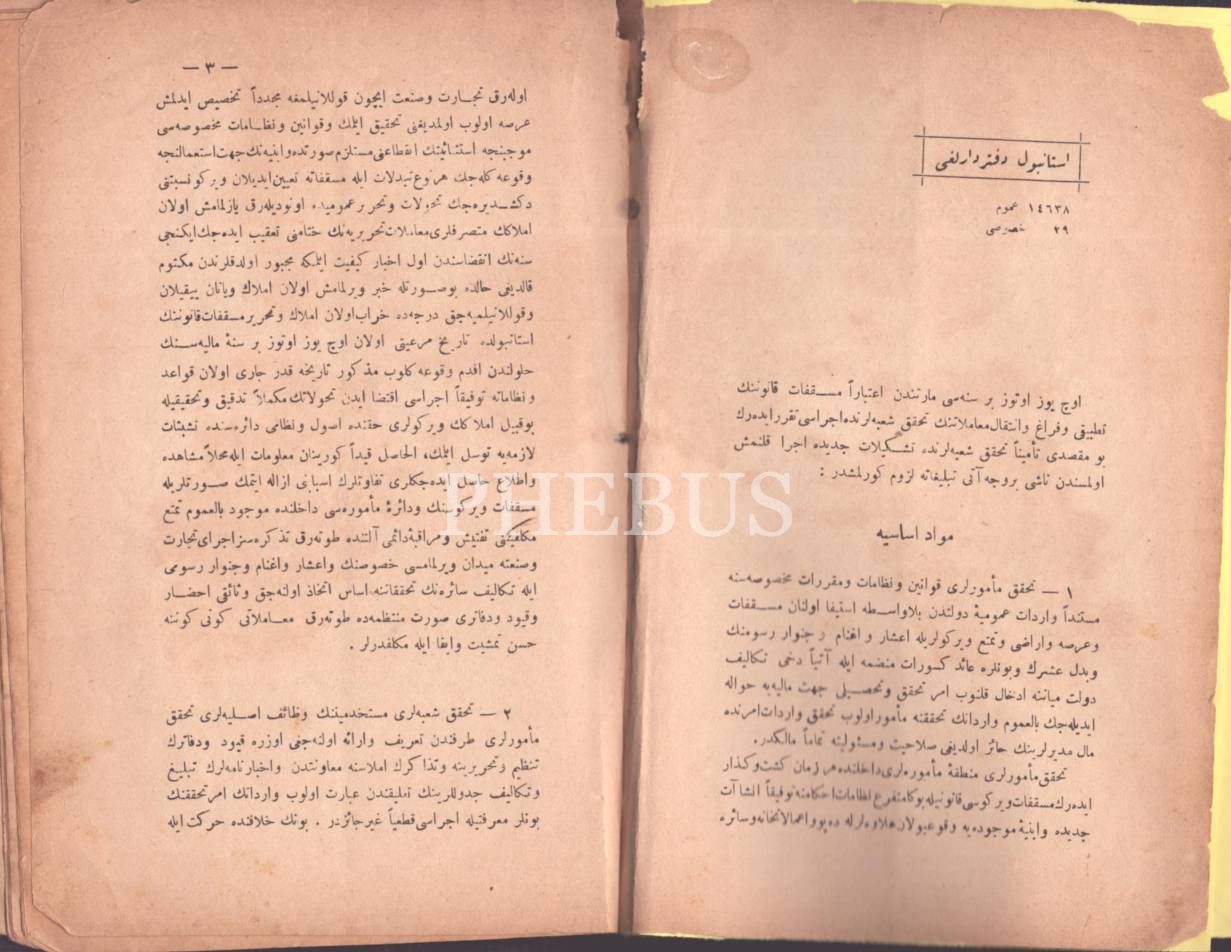 استانبول دفتردارلغی
١٤٦٣٨ عموم
٢٩ خصوصی
اوچ یوز اوتوز بر سنه‌سی مارتندن اعتباراً مسقفات قانوننك
تطبیقی وفراغ وانتقال معاملاتنك تحقق شعبه‌لرنده اجراسی تقرر ایده‌رك
بو مقصدی تأمیناً تحقق شعبه‌لرنده تشكیلات جدیده اجرا قلنمش
اولمسندن ناشی بروجه آتی تبلیغاته لزوم كورلمشدر :
مواد اساسیه
١ — تحقق مأمورلری قوانین ونظامات ومقررات مخصوصه‌سنه
مستنداً واردات عمومیهٔ دولتدن بلاواسطه استیفا اولنان مسقفات
وعرصه واراضی وتمتع ویركولریله اعشار و اغنام و جنوار رسومنك
وبدل عشرك وبونلره عائد كسورات منضمه ایله آتیاً دخی تكالیف
دولت میاننه ادخال قلنوب امر تحقق وتحصیلی جهت مالیه‌یه حواله
ایدیله‌جك بالعموم وارداتك تحققنه مأمور اولوب تحقق واردات امرنده
مال مدیرلرینك حائز اولدیغی صلاحیت ومسئولیته تماماً مالكدر.
تحقق مأمورلری منطقهٔ مأموره‌لری داخلنده هر زمان كشت وكذار
ایده‌رك مسقفات ویركوسی قانونیله بوكا متفرع نظامات احكامنه توفیقاً انشاآت
جدیده وابنیهٔ موجوده‌یه وقوعبولان علاوه‌لرله ده‌پو واعمالاتخانه وسائره
— ٣ —
اوله‌رق تجارت وصنعت ایچون قوللانیلمغه مجدداً تخصیص ایدلمش
عرصه اولوب اولمدیغنی تحقیق ایتمك وقوانین ونظامات مخصوصه‌سی
موجبنجه استثنائیتك انقطاعنی مستلزم صورتده وابنیه‌نك جهت استعمالنجه
وقوعه كله‌جك هر نوع تبدلات ایله مسقفاته تعیین ایدیلان ویركو نسبتنی
دكشدیره‌جك تحولات وتحریر عمومیده اونودیله‌رق یازلمامش اولان
املاكك متصرفلری معاملات تحریریه‌نك ختامنی تعقیب ایده‌جك ایكنجی
سنه‌نك انقضاسندن اول اخبار كیفیت ایتمكه مجبور اولدقلرندن مكتوم
قالدیغی حالده بوصورتله خبر ویرلمامش اولان املاك ویانان ییقیلان
وقوللانیلمیه‌جق درجه‌ده خراب اولان املاك وتحریر مسقفات قانوننك
استانبولده تاریخ مرعیتی اولان اوچ یوز اوتوز بر سنهٔ مالیه‌سنك
حلولندن اقدم وقوعه كلوب مذكور تاریخه قدر جاری اولان قواعد
ونظاماته توفیقاً اجراسی اقتضا ایدن تحولاتك مكملاً تدقیق وتحقیقیله
بوقبیل املاكك ویركولری حقنده اصول ونظامی دائره‌سنده تشبثات
لازمه‌یه توسل ایتمك، الحاصل قیداً كورینان معلومات ایله محلاً مشاهده
واطلاع حاصل ایده‌جكلری تفاوتلرك اسبابنی ازاله ایتمك صورتلریله
مسقفات ویركوسنك ودائرهٔ مأموره‌سی داخلنده موجود بالعموم تمتع
مكلفیتنی تفتیش ومراقبهٔ دائمی آلتنده طوته‌رق تذكره‌سز اجرای تجارت
وصنعته میدان ویرلمامسی خصوصنك واعشار واغنام وجنوار رسومی
ایله تكالیف سائره‌نك تحققاتنه اساس اتخاذ اولنه‌جق وثائقی احضار
وقیود ودفاتری صورت منتظمه‌ده طوته‌رق معاملاتی كونی كوننه
حسن تمشیت وایفا ایله مكلفدرلر .
٢ — تحقق شعبه‌لری مستخدمیننك وظائف اصلیه‌لری تحقق
مأمورلری طرفندن تعریف وارائه اولنه‌جغی اوزره قیود ودفاترك
تنظیم وتحریرینه وتذاكرك املاسنه معاونتدن واخبارنامه‌لرك تبلیغ
وتكالیف جدوللرینك تعلیقندن عبارت اولوب وارداتك امر تحققنك
بونلر معرفتیله اجراسی قطعیاً غیر جائزدر . بونك خلافنده حركت ایله
PHEBUS